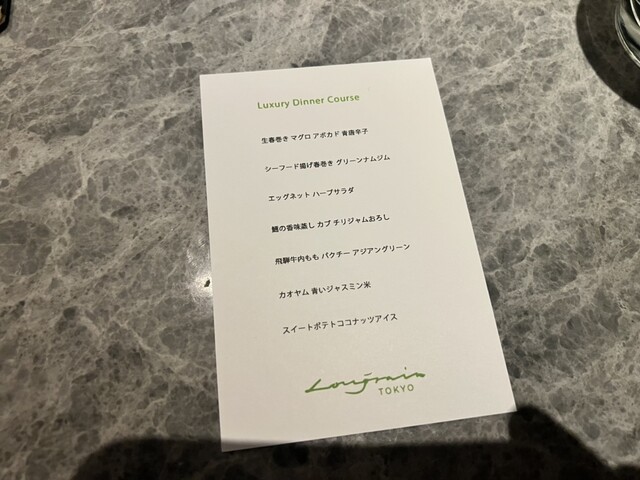 Luxury Dinner Course
生春巻き マグロ アボカド 青唐辛子
シーフード揚げ春巻き グリーンナムジム
エッグネット ハーブサラダ
鱈の香味蒸し カブ チリジャムおろし
飛騨牛内もも パクチー アジアングリーン
カオヤム 青いジャスミン米
スイートポテトココナッツアイス
Longrain
TOKYO